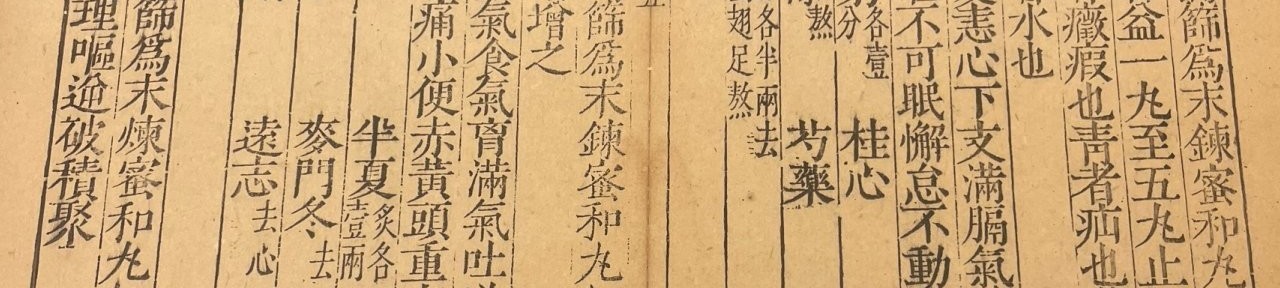 篩爲末鍊蜜和丸
益一丸至五丸止
癥瘕也靑者疝也
水也
恚心下支滿膈氣
不可眠懈怠不動
各壹
分
桂心
熬
芍藥
各半兩去
翅足熬
五
篩爲末鍊蜜和丸
增之
氣食氣肓滿氣吐
痛小便赤黃頭重
半夏炙各
壹兩
麥門冬去
遠志去心
篩爲末煉蜜和丸
理嘔逆破積聚